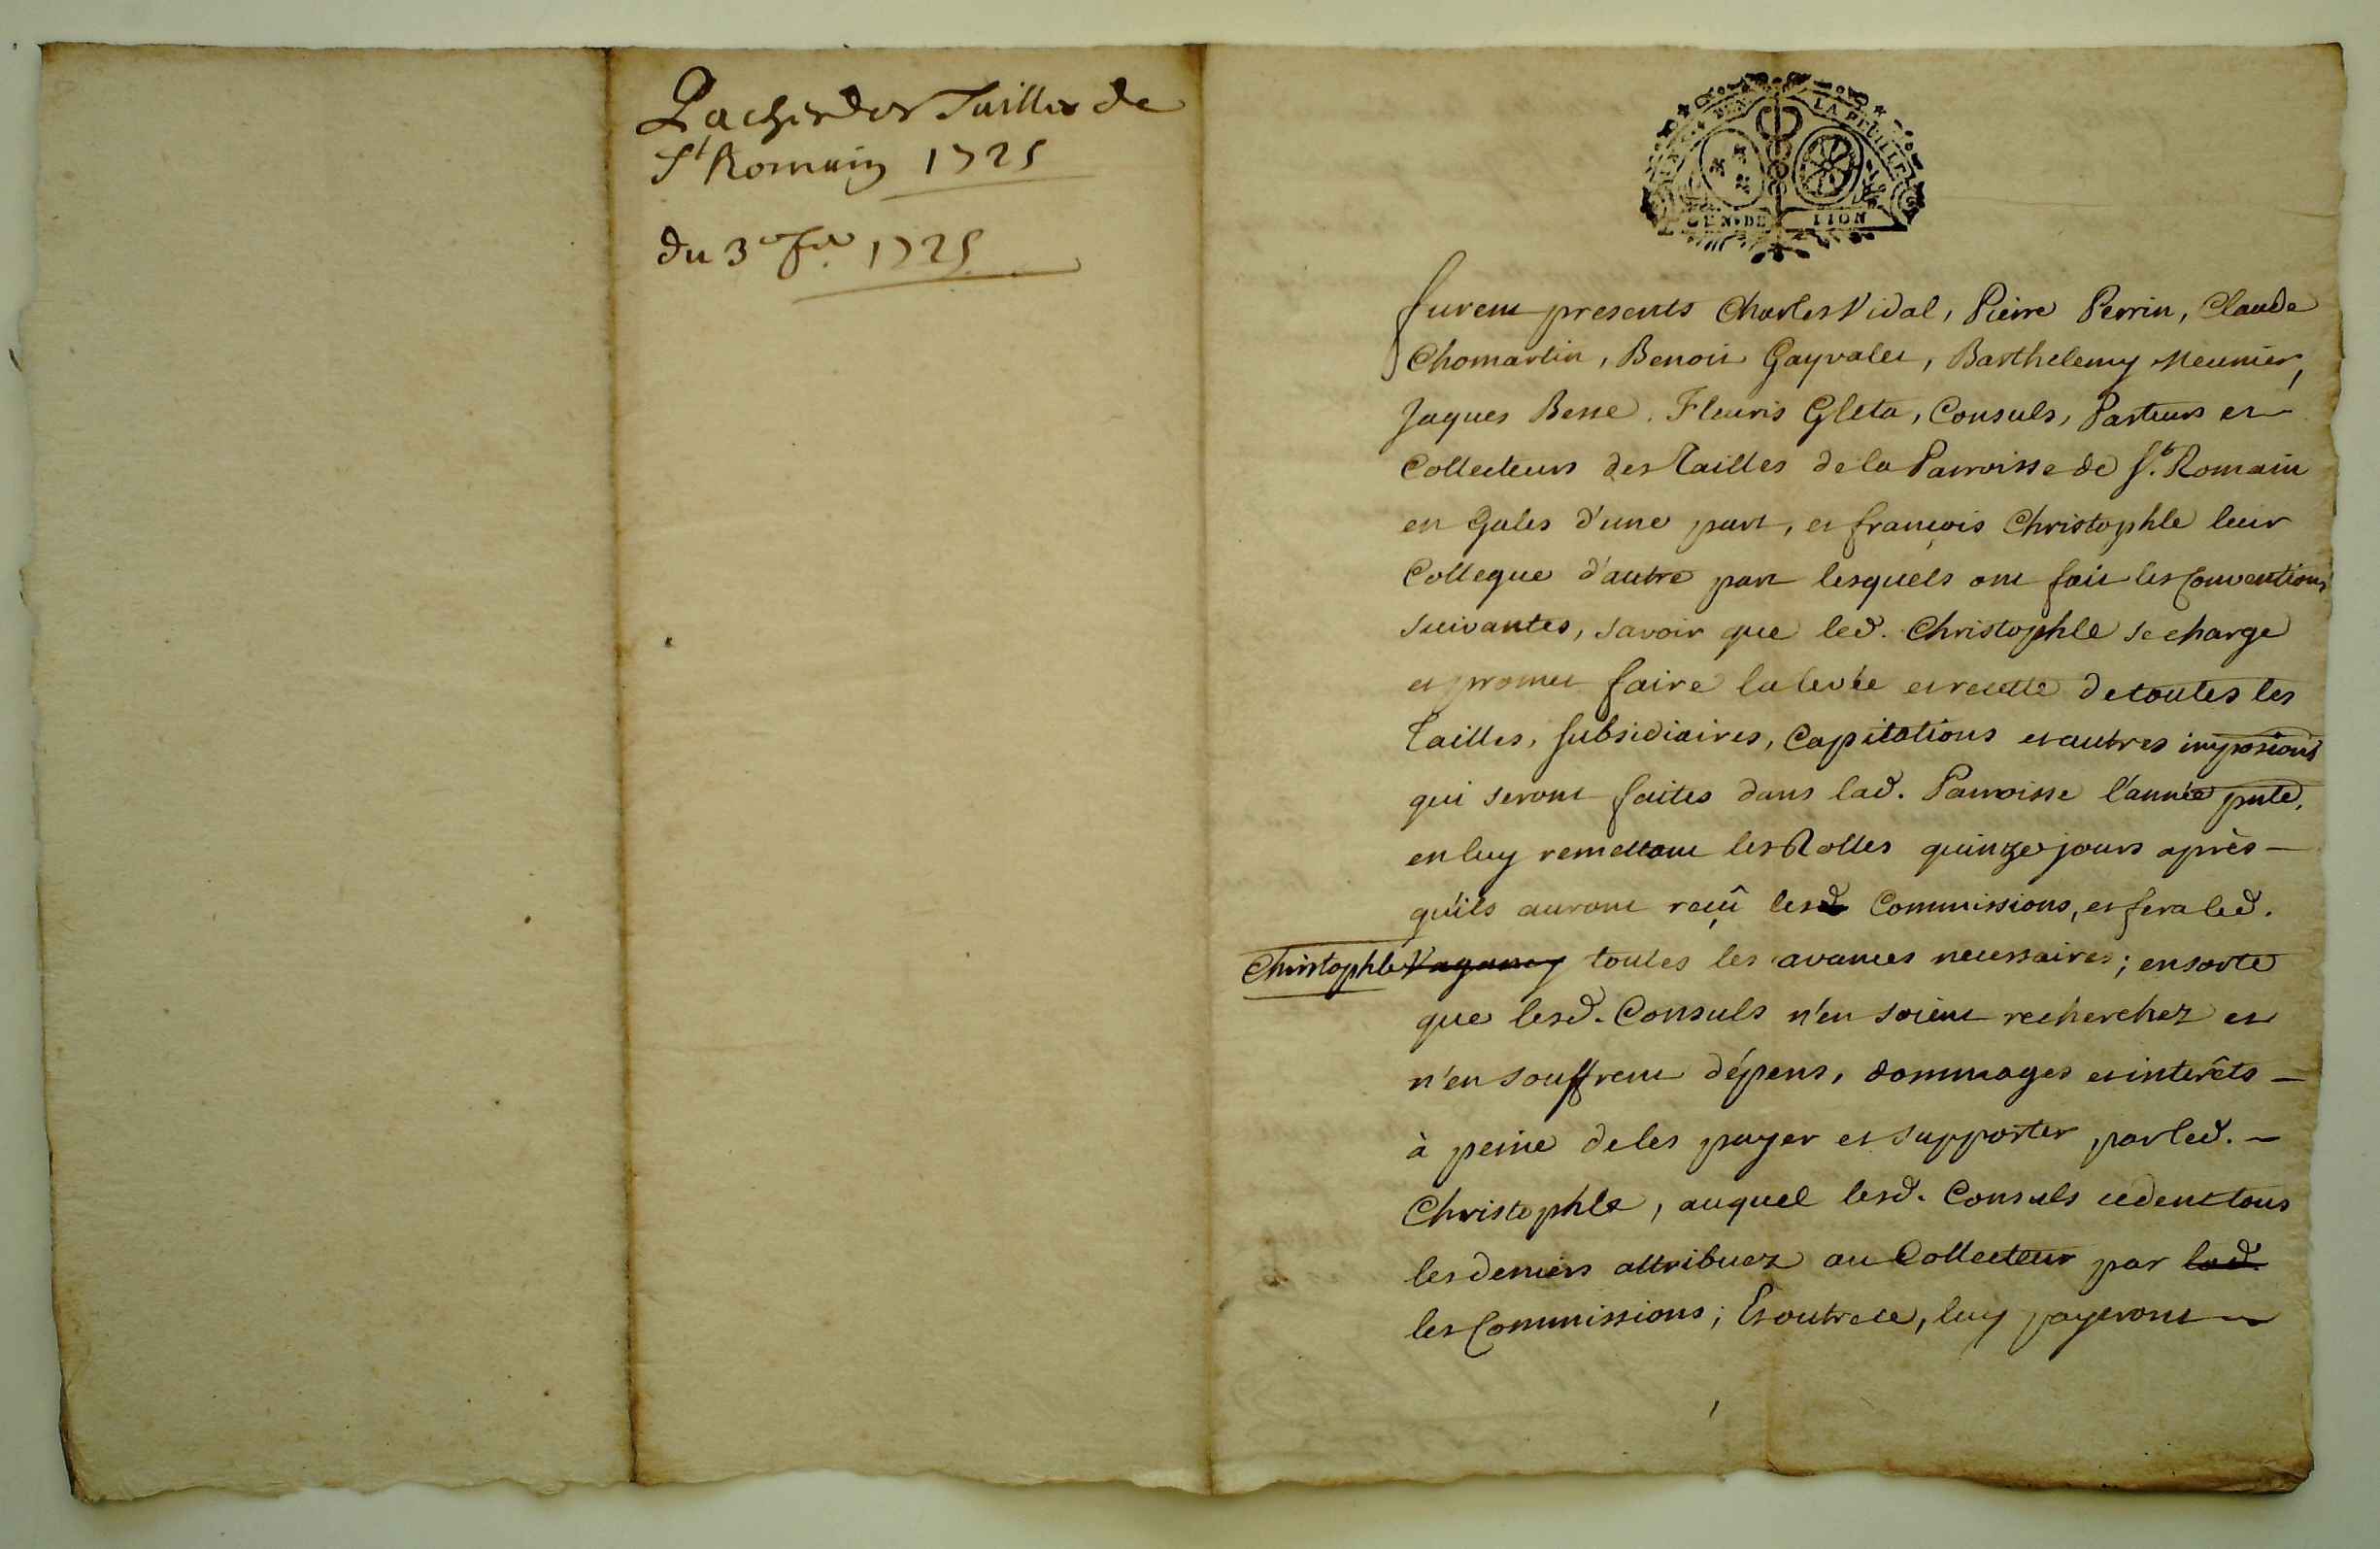 Pache des Tailles de
St Romain 1725
du 3e fer. 1725
LA FEUILLE
GEN. DE LION
furent presents Charles Vidal, Pierre Perrin, Claude
Chomartin, Benoit Gayvalet, Barthelemy Meunier,
Jaques Besse, Fleuris Gleta, Consuls, Parteurs et
Collecteurs des Tailles de la Parroisse de St. Romain
en Gales d'une part, et françois Christophle leur
Collegue d'autre part lesquels ont fait les Conventions
suivantes, savoir que led. Christophle se charge
et promet faire la levée et recette de toutes les
Tailles, subsidiaires, Capitations et autres imposions
qui seront faites dans lad. Parroisse l'année pnte,
en luy remettant les Rolles quinze jours après
qu'ils auront reçû les Commissions, et fera led.
Christophle Vaganay toutes les avances necessaires; ensorte
que lesd. Consuls n'en soient recherchez et
n'en souffrent dépens, dommages et interêts
à peine de les payer et supporter par led.
Christophle, auquel lesd. Consuls cedent tous
les deniers attribuez au Collecteur par lad.
les Commissions; Et outre ce, luy payeront